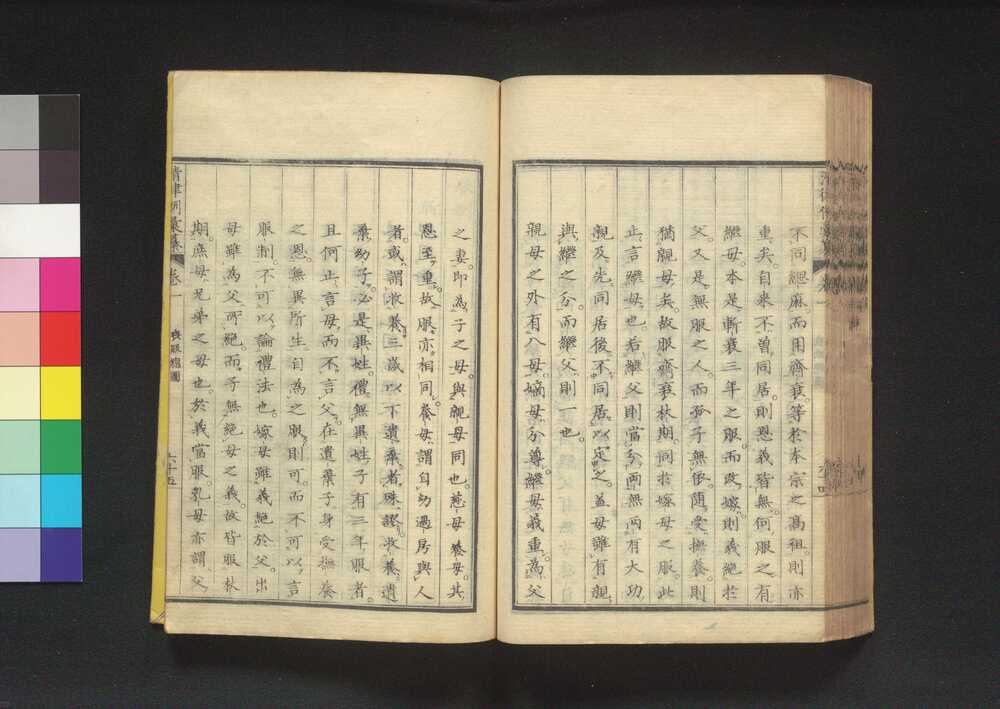 不同緦麻而用齊衰等於本宗之高祖則亦
重矣自来不曽同居則恩義皆無何服之有
繼母本是斬衰三年之服而改嫁則義絕於
父又是無服之人而孤子無依随受撫養則
猶親母矣故服齊衰杖期同於嫁母之服此
止言繼母也若繼父則當分兩無兩有大功
親及先同居後不同居以定之葢母雖有親
與繼之分而繼父則一也
親母之外有八母嫡母分尊繼母義重為父
之妻即為子之母與親母同也慈母養母其
恩至重故服亦相同養母謂自幼過房與人
者或謂收養三歲以下遺棄者殊謬收養遺
棄幼子必是異姓禮無異姓子有三年服者
且何止言母而不言父在遺棄子身受撫養
之恩無異所生自為之服則可而不可以言
服制不可以論禮法也嫁母雖義絕於父出
母雖為父所絕而子無絕母之義故皆服杖
期庶母兄弟之母也於義當服乳母亦謂父
清律例彙纂 卷一 喪服總圖 六十五